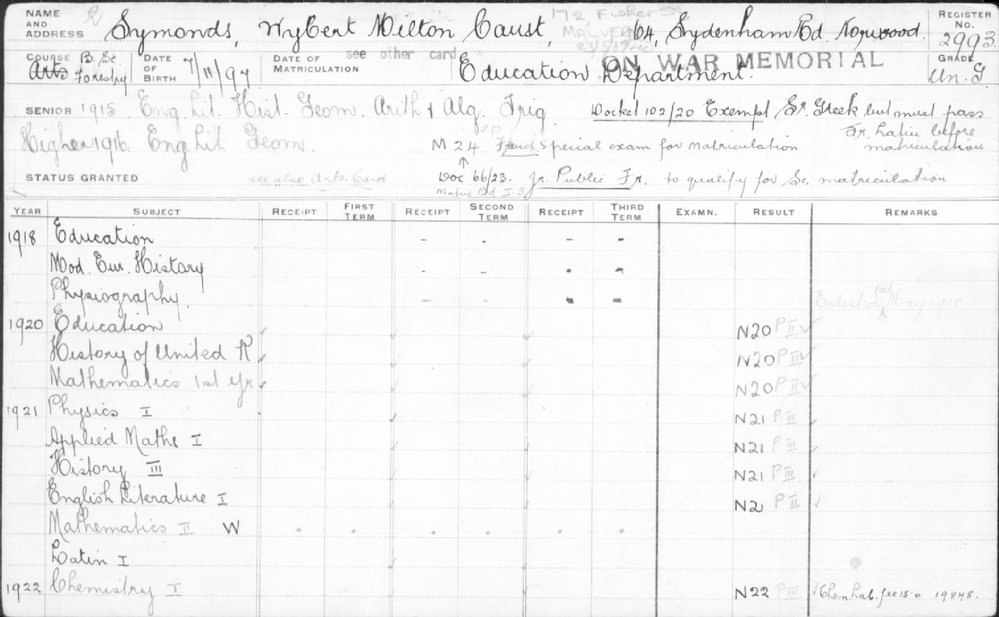 NAME AND ADDRESS R Symonds, Wybert Milton Caust, 64, Sydenham Rd. Norwood. REGISTER No. 2993.
172 Fisher St
MALVERN
see other card ON WAR MEMORIAL
COURSE Arts B. Sc. Forestry DATE OF BIRTH 7/11/97 DATE OF MATRICULATION Education Department. GRADE Un. G
SENIOR 1915 Eng Lit. Hist. Geom. Arith & Alg. Trig. Docket 102/20 Exempt Sr. Greek but must pass
Sr. Latin before matriculation
Higher 1916 Eng Lit. Geom. M 24 French Special exam for matriculation
STATUS GRANTED see also Arts Card Doc 66/23. Jr. Public Fr. to qualify for Sc. matriculation
YEAR SUBJECT RECEIPT FIRST TERM RECEIPT SECOND TERM RECEIPT THIRD TERM EXAMN. RESULT REMARKS
1918 Education - - - -
Mod. Eur. History - - - -
Physiography - - - - Enlisted 1st May 1918
1920 Education N20 P II ✓
History of United K N20 P III ✓
Mathematics 1st Yr N20 P II ✓
1921 Physics I N21 P III
Applied Maths I N21 P II
History III N21 P III
English Literature I N21 P II
Mathematics II W
Latin I
1922 Chemistry I N22 P III Chem Lab. fee 15-0 19848.